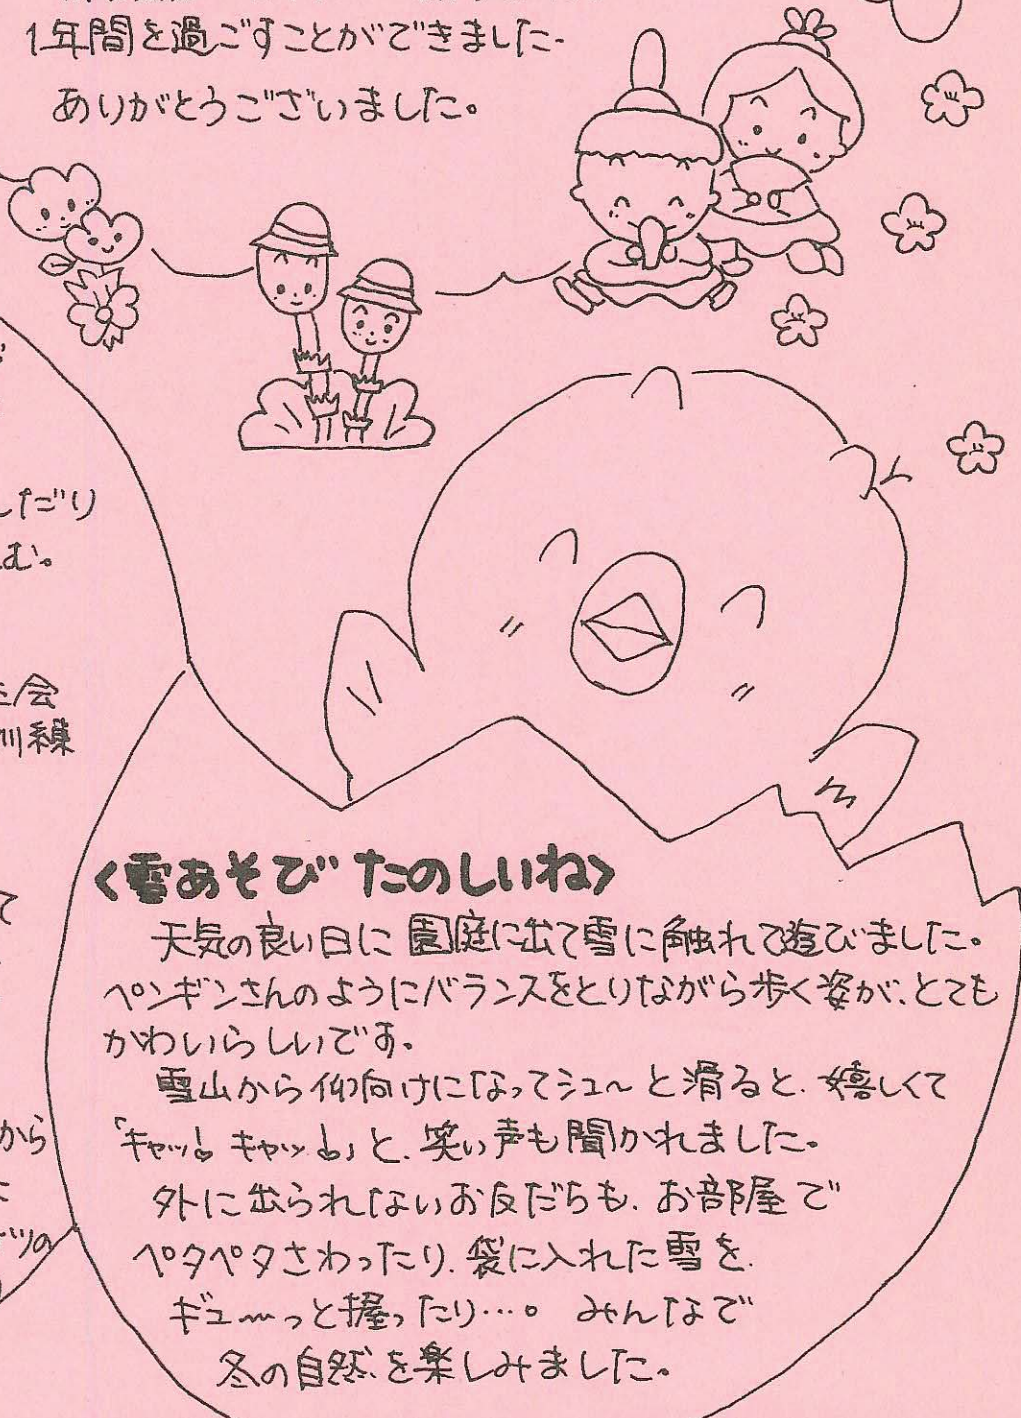 1年間を過ごすことができました。
ありがとうございました。
しだり
む。
会
訓練
て
から
ツの
<雪あそび たのしいね>
天気の良い日に園庭に出て雪に触れて遊びました。
ペンギンさんのようにバランスをとりながら歩く姿が、とても
かわいらしいです。
雪山から仰向けになってシュ〜と滑ると、嬉しくて
「キャッ♪キャッ♪」と、笑い声も聞かれました。
外に出られないお友だちも、お部屋で
ペタペタさわったり、袋に入れた雪を、
ギュ〜っと握ったり…。みんなで
冬の自然を楽しみました。